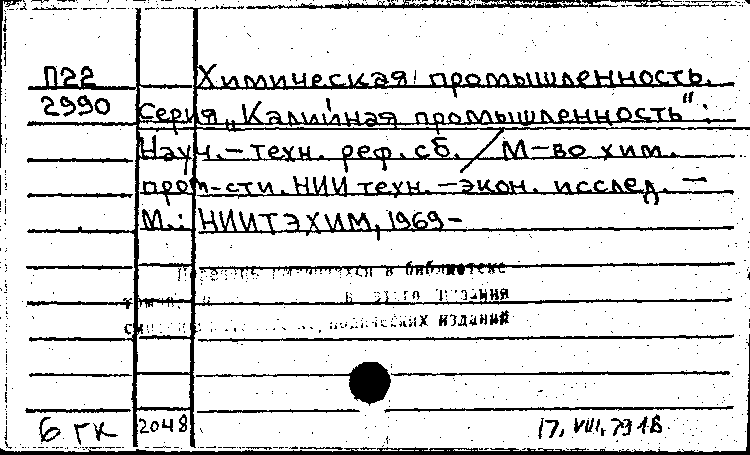 П22 Химическая промышленность.
2990 Серия „Калийная промышленность":
Науч.-техн. реф. сб. / М-во хим.
пром-сти. НИИ техн.-экон. исслед. —
М.: НИИТЭХИМ, 1969-
в библиотеке
издания
изданий
6 ГК 2048 17, VIII, 79